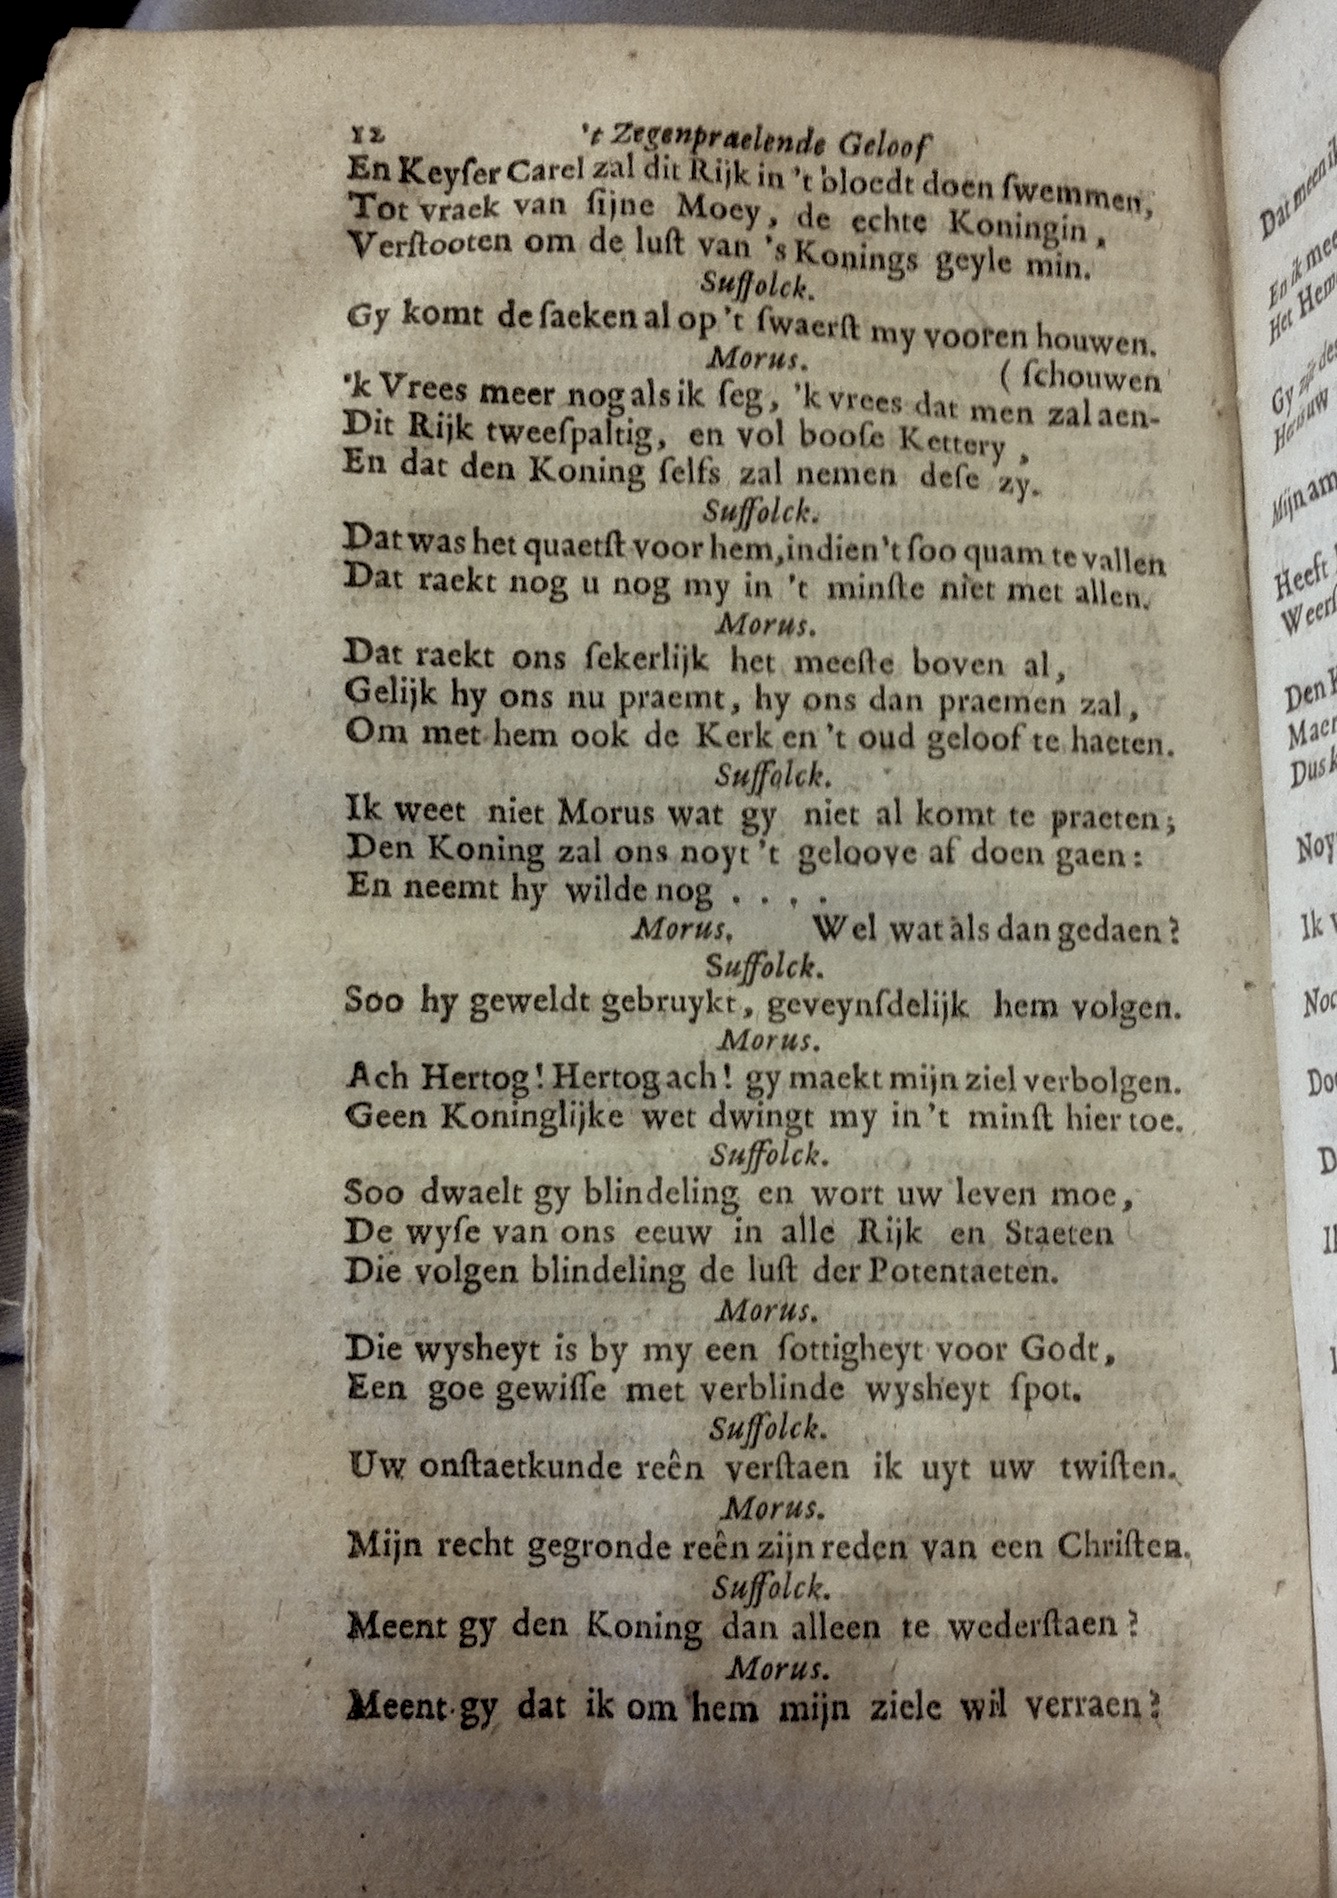 12 't Zegenpraelende Geloof
En Keyſer Carel zal dit Rijk in 't bloedt doen ſwemmen,
Tot vraek van ſijne Moey, de echte Koningin,
Verſtooten om de luſt van 's Konings geyle min.
Suffolck.
Gy komt de ſaeken al op 't ſwaerſt my vooren houwen.
Morus. ( ſchouwen
'k Vrees meer nog als ik ſeg, 'k vrees dat men zal aen-
Dit Rijk tweeſpaltig, en vol booſe Kettery,
En dat den Koning ſelfs zal nemen deſe zy.
Suffolck.
Dat was het quaetſt voor hem, indien 't ſoo quam te vallen
Dat raekt nog u nog my in 't minſte niet met allen.
Morus.
Dat raekt ons ſekerlijk het meeſte boven al,
Gelijk hy ons nu praemt, hy ons dan praemen zal,
Om met hem ook de Kerk en 't oud geloof te haeten.
Suffolck.
Ik weet niet Morus wat gy niet al komt te praeten;
Den Koning zal ons noyt 't geloove af doen gaen:
En neemt hy wilde nog . . . .
Morus. Wel wat als dan gedaen?
Suffolck.
Soo hy geweldt gebruykt, geveynſdelijk hem volgen.
Morus.
Ach Hertog! Hertog ach! gy maekt mijn ziel verbolgen.
Geen Koninglijke wet dwingt my in 't minſt hier toe.
Suffolck.
Soo dwaelt gy blindeling en wort uw leven moe,
De wyſe van ons eeuw in alle Rijk en Staeten
Die volgen blindeling de luſt der Potentaeten.
Morus.
Die wysheyt is by my een ſottigheyt voor Godt,
Een goe gewiſſe met verblinde wysheyt ſpot.
Suffolck.
Uw onſtaetkunde reên verſtaen ik uyt uw twiſten.
Morus.
Mijn recht gegronde reên zijn reden van een Chriſten.
Suffolck.
Meent gy den Koning dan alleen te wederſtaen?
Morus.
Meent gy dat ik om hem mijn ziele wil verraen?
Dat meen ik
En ik
Het
Gy
Mijn
Heeft
Den
Maer
Dus
Ik